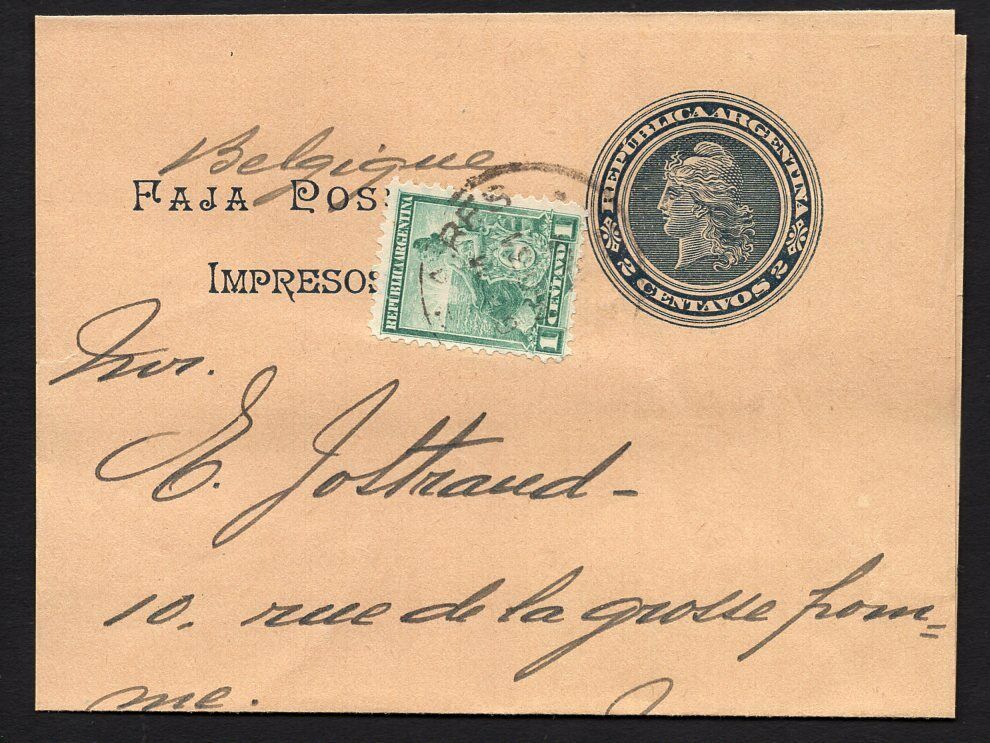 Belgique
FAJA POS
IMPRESOS
REPÚBLICA ARGENTINA
2 CENTAVOS 2
REPUBLICA ARGENTINA
1 CENTAVO 1
Mr.
E. Jostrand-
10, rue de la grosse pom=
me.